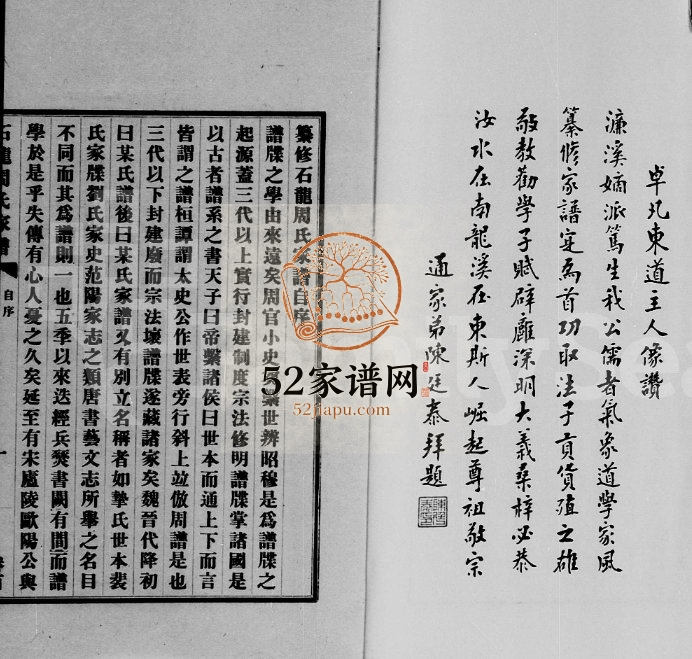 卓凡東道主人像讚
濂溪嫡派篤生我公儒者氣象道學家風
纂修家譜定為首功取法子貢貨殖之雄
敬教勸學子賦辟廱深明大義桑梓必恭
汝水在南龍溪在東斯人崛起尊祖敬宗
通家弟陳廷泰拜題
纂修石龍周氏家譜自序
譜牒之學由來遠矣周官小史奠繫世辨昭穆是為譜牒之
起源蓋三代以上實行封建制度宗法修明譜牒掌諸國是
以古者譜系之書天子曰帝繫諸侯曰世本而通上下而言
皆謂之譜桓譚謂太史公作世表旁行斜上竝倣周譜是也
三代以下封建廢而宗法壞譜牒遂藏諸家矣魏晉代降初
曰某氏譜後曰某氏家譜又有別立名稱者如摯氏世本裴
氏家牒劉氏家史范陽家志之類唐書藝文志所舉之名目
不同而其為譜則一也五季以來迭經兵燹書闕有間而譜
學於是乎失傳有心人憂之久矣延至有宋廬陵歐陽公與
石龍周氏家譜
自序
一
52家谱网
52jiapu.com